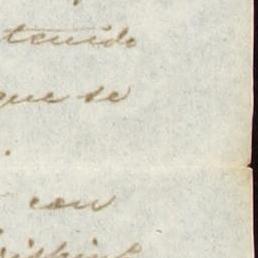 tenido
que se
con